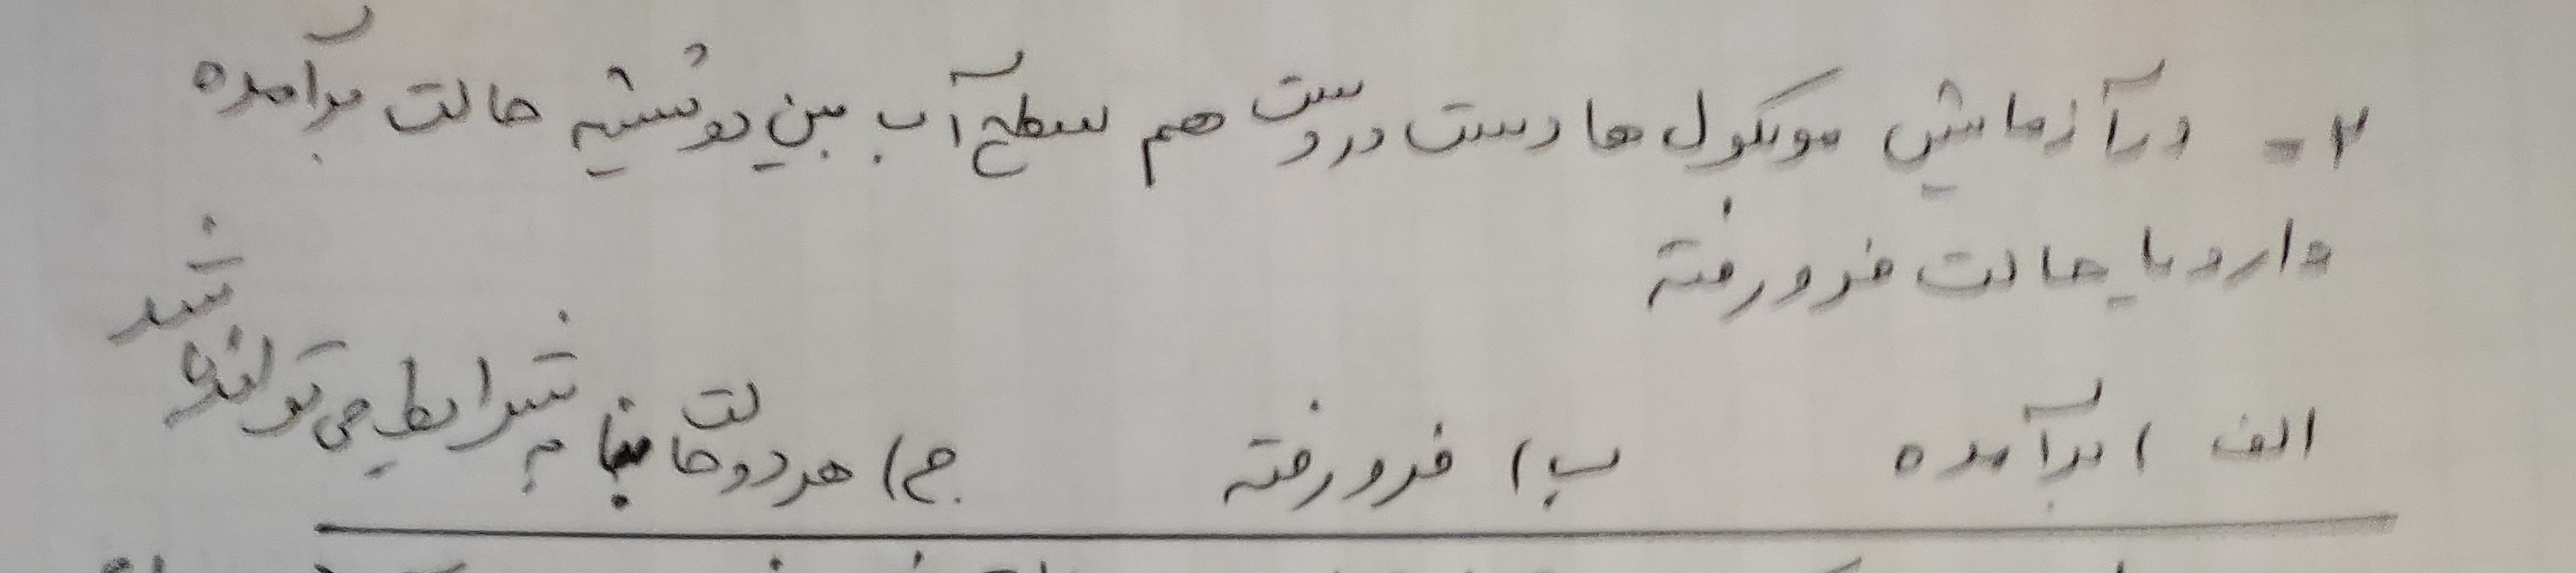 ۲- در آزمایش مولکول ها دست در دست هم سطح آب بین دو شیشه حالت برآمده
دارد یا حالت فرورفته
الف) برآمده ب) فرورفته ج) هر دو حالت بنا به شرایط می تواند باشد